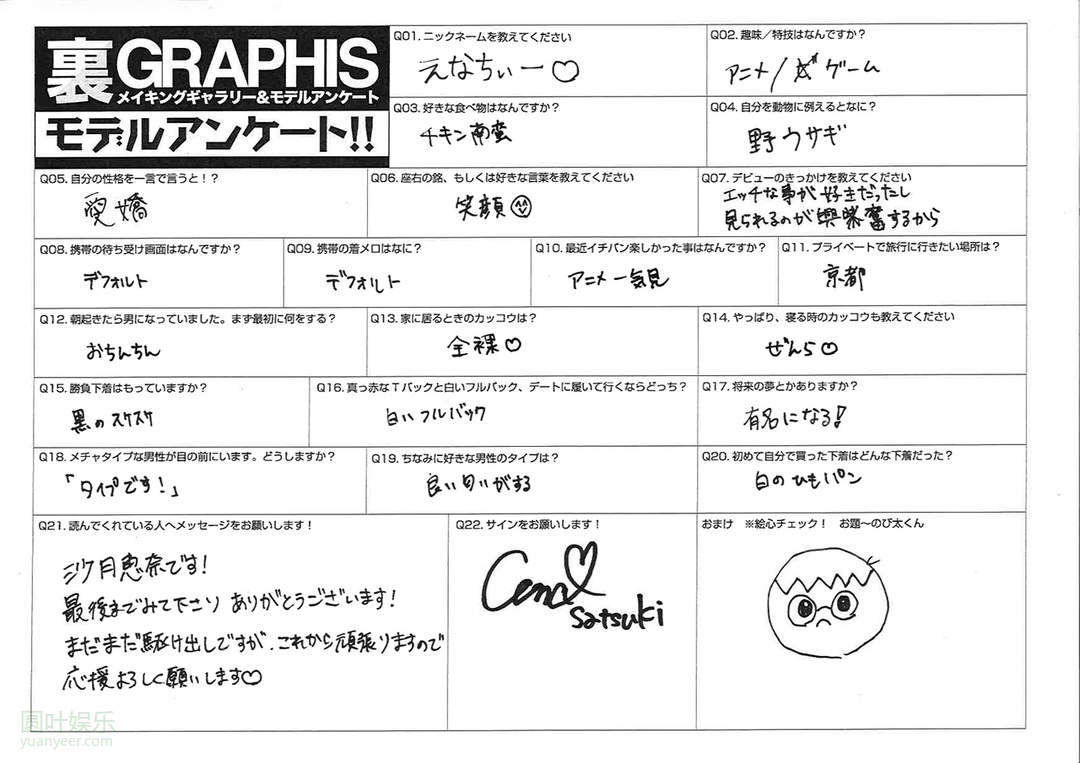 裏GRAPHIS
メイキングギャラリー&モデルアンケート
モデルアンケート!!
Q01. ニックネームを教えてください
えなちぃー♡
Q02. 趣味／特技はなんですか？
アニメ/ ゲーム
Q03. 好きな食べ物はなんですか？
チキン南蛮
Q04. 自分を動物に例えるとなに？
野ウサギ
Q05. 自分の性格を一言で言うと！？
愛嬌
Q06. 座右の銘、もしくは好きな言葉を教えてください
笑顔
Q07. デビューのきっかけを教えてください
エッチな事が好きだったし
見られるのが興奮するから
Q08. 携帯の待ち受け画面はなんですか？
デフォルト
Q09. 携帯の着メロはなに？
デフォルト
Q10. 最近イチバン楽しかった事はなんですか？
アニメ一気見
Q11. プライベートで旅行に行きたい場所は？
京都
Q12. 朝起きたら男になっていました。まず最初に何をする？
おちんちん
Q13. 家に居るときのカッコウは？
全裸♡
Q14. やっぱり、寝る時のカッコウも教えてください
ぜんら♡
Q15. 勝負下着はもっていますか？
黒のスケスケ
Q16. 真っ赤なTバックと白いフルバック、デートに履いて行くならどっち？
白いフルバック
Q17. 将来の夢とかありますか？
有名になる!
Q18. メチャタイプな男性が目の前にいます。どうしますか？
「タイプです!」
Q19. ちなみに好きな男性のタイプは？
良い匂いがする
Q20. 初めて自分で買った下着はどんな下着だった？
白のひもパン
Q21. 読んでくれている人へメッセージをお願いします！
沙月恵奈です!
最後までみて下さり ありがとうございます!
まだまだ駆け出しですが、これから頑張りますので
応援よろしく願いします♡
Q22. サインをお願いします！
Ena♡
Satsuki
おまけ　※絵心チェック！　お題〜のび太くん
圆叶娱乐
yuanyeer.com